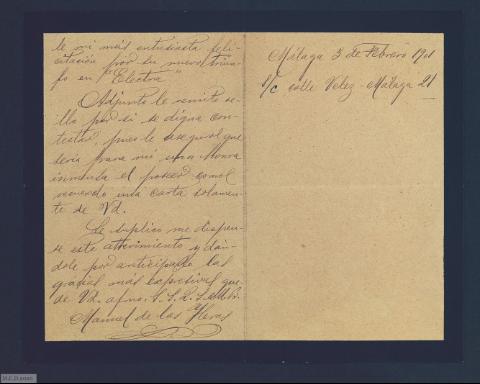 le mi más entusiasta feli-
citación por su nuevo triun-
fo en "Electra"
Adjunto le remito se-
llo por si se digna con-
testar, pues le aseguro que
seria para mi, una honra
inmensa el poseer como
recuerdo una carta solamen-
te de Vd.
Le suplico me dispen-
se este atrevimiento y dán-
dole por anticipado las
gracias mas expresivas que-
da de Vd. afmo. S. S. Q. S. M. B.
Manuel de las Heras
Málaga 3 de Febrero 1901
S/c calle Velez-Málaga 21